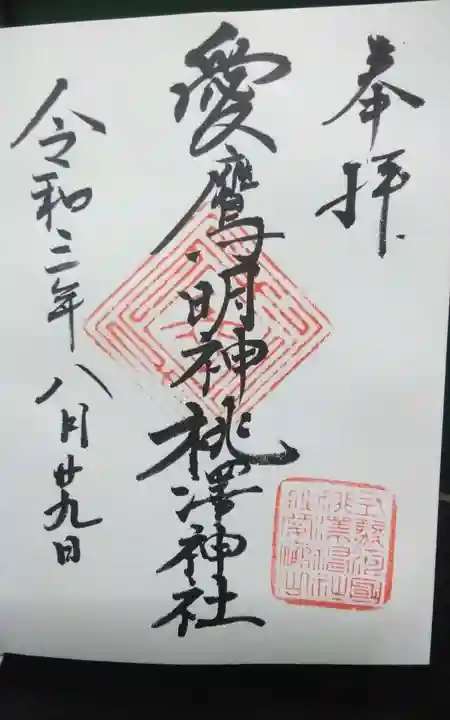 奉拝
愛鷹明神桃澤神社
令和三年八月廿九日